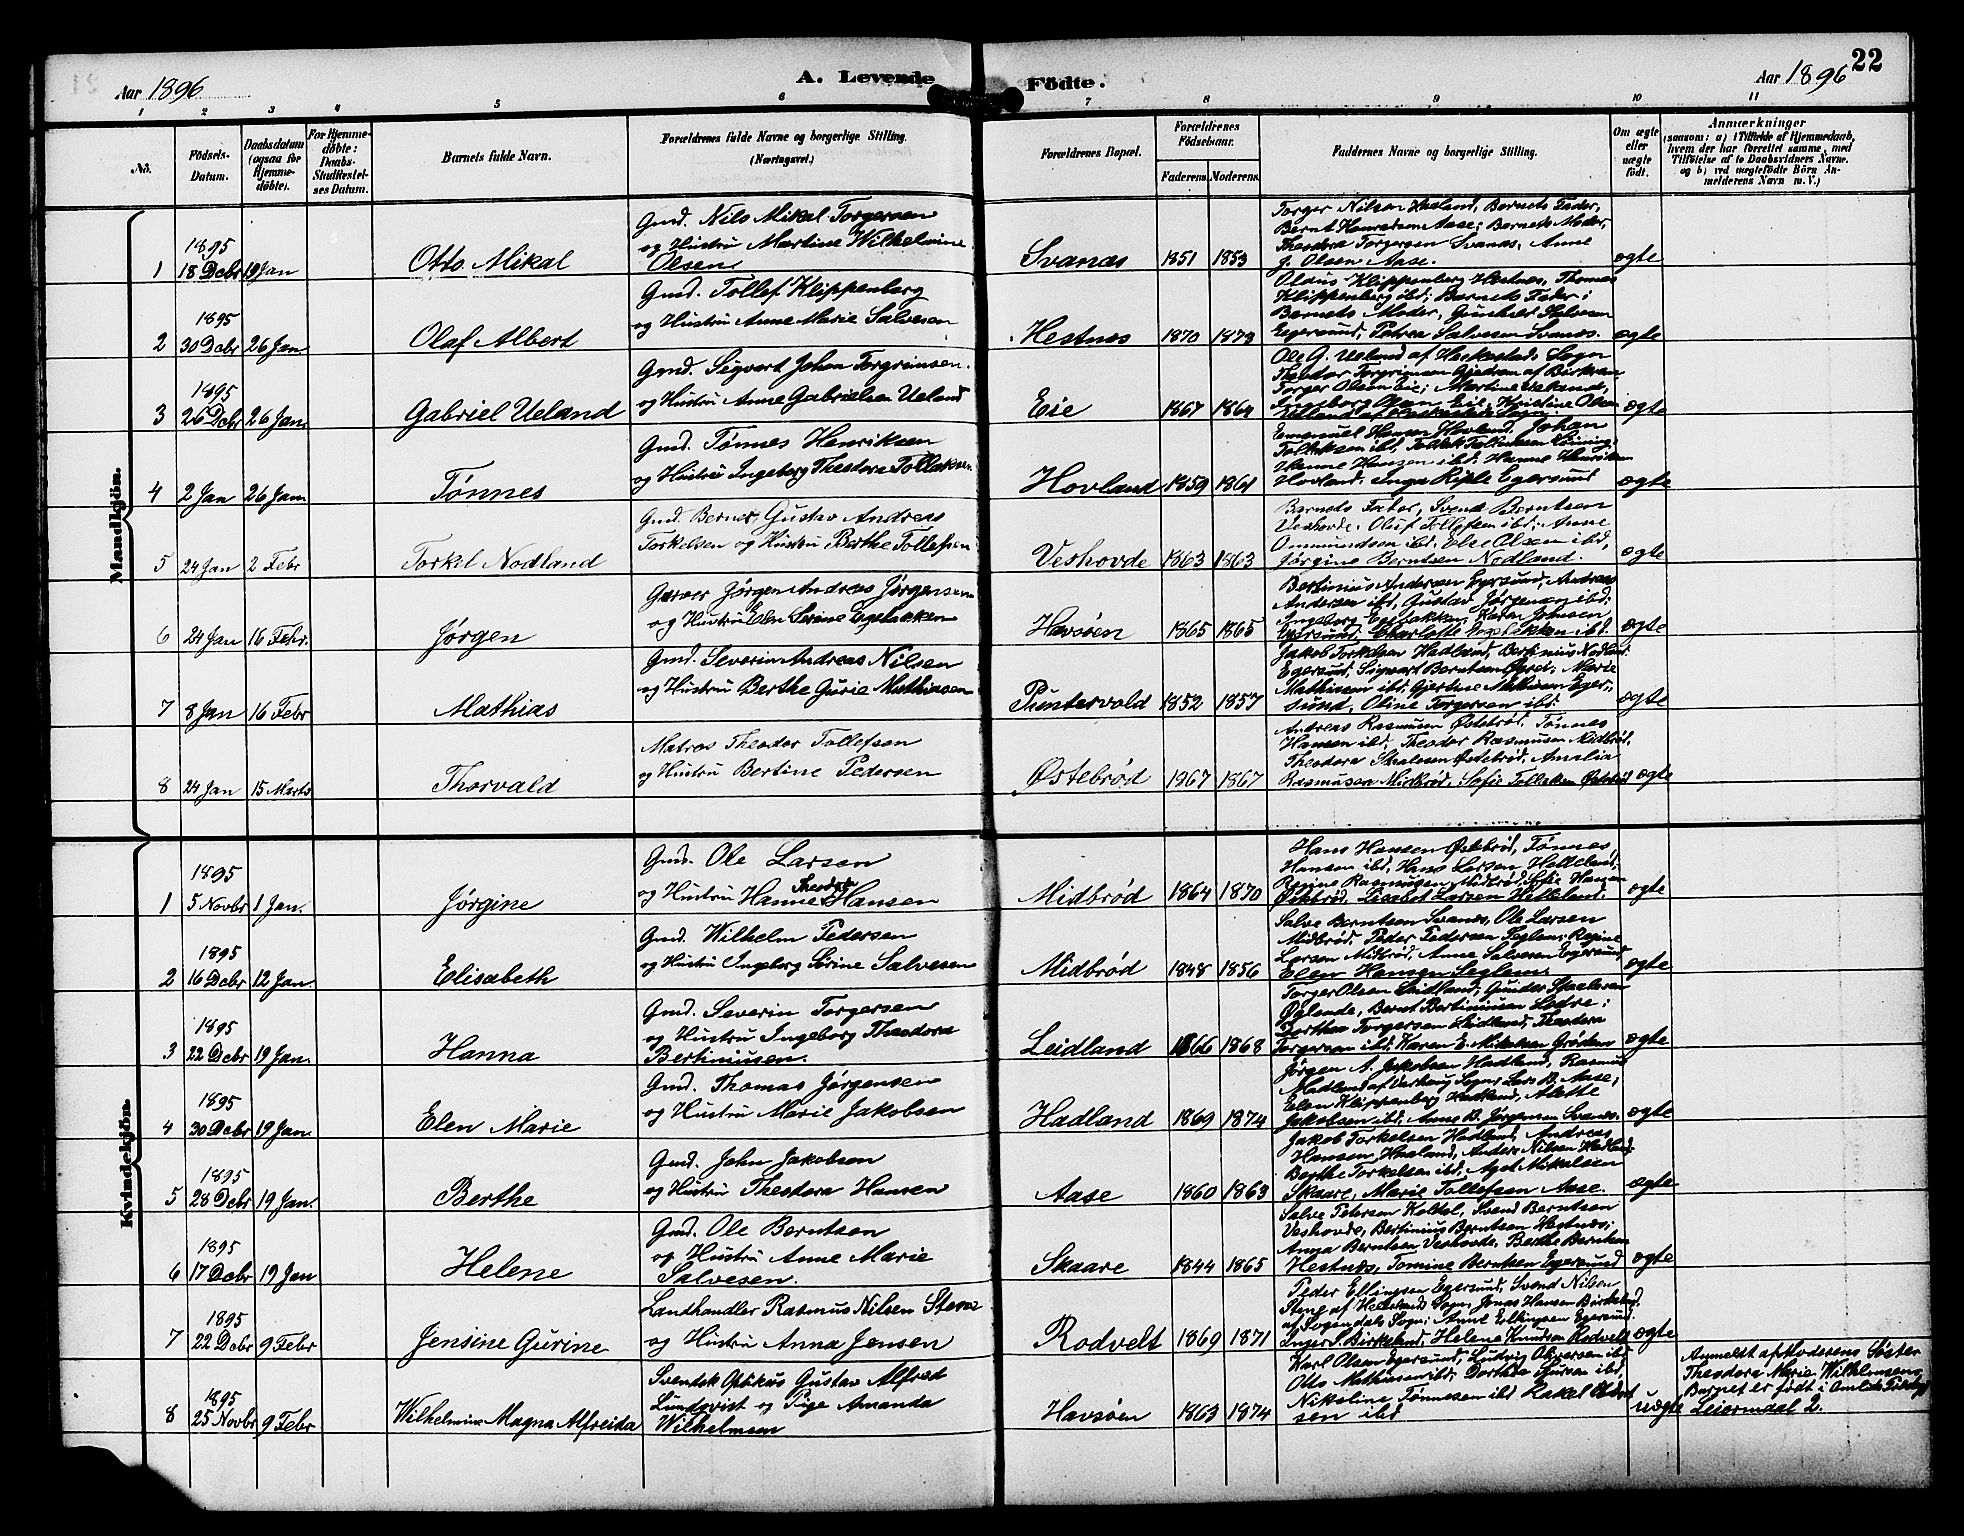 Aar 1896
A. Levende Födte.
Aar 1896
22
1 2 3 4 5 6 7 8 9 10 11
No.
Födsels-Datum.
Daabsdatum (ogsaa for Hjemme-döbte).
For Hjemme-döbte: Daabs-Stadfæstel-ses Datum.
Barnets fulde Navn.
Forældrenes fulde Navne og borgerlige Stilling. (Næringsvei.)
Forældrenes Bopæl.
Forældrenes Födselsaar.
Faderens. Moderens.
Faddernes Navne og borgerlige Stilling.
Om ægte eller uægte födt.
Anmærkninger
(saasom: a) i Tilfælde af Hjemmedaab,
hvem der har forrettet samme, med
Tilföielse af to Daabsvidners Navne.
og b) ved uægtefödte Börn An-
melderens Navn m. V.)
Mandkjön.
1 1895 18 Decbr 19 Jan
Otto Mikal
Gmd. Nils Mikal Torgersen
og Hustru Martine Wilhelmine
Olsen
Svanæs 1851 1853
Torger Nilsen Haaland, Barnets Fader,
Bernt Henriksen Aase; Barnets Moder,
Theodora Torgersen Svanæs, Anne
J. Olsen Aase.
ægte
2 1895 30 Decbr 26 Jan
Olaf Albert
Gmd. Tollef Klippenberg
og Hustru Anne Marie Salvesen
Hestnes 1870 1873
Olaus Klippenberg Hestnes, Thomas
Klippenberg ibd; Barnets Fader;
Barnets Moder, Gunhild Salvesen
Egersund, Petrea Salvesen Svanæs.
ægte
3 1895 26 Decbr 26 Jan
Gabriel Ueland
Gmd. Sigvart Johan Torgrimsen
og Hustru Anne Gabrielsen Ueland
Eie 1867 1864
Ole G. Ueland af Heskestads Sogn
Theodor Torgrimsen Gjedrem af Birkrem
Torger Olsen Eie; Martine Ueland,
Ingeborg Olsen Eie, Kristine Olsen
ægte
4 2 Jan 26 Jan
Tønnes
Gmd. Tønnes Henriksen
og Hustru Ingeborg Theodora Tollaksen
Hovland 1859 1861
Emanuel Hansen Hovland, Johan
Tollaksen ibd, Tollak Tollaksen
Hanne Hansen ibd, Hanne Henriksen
Hovland. Inga Egersund
ægte
5 24 Jan 2 Febr
Torkel Nodland
Gmd. Berner Gustav Andreas
Torkelsen og Hustru Berthe Tollefsen
Veshovde 1863 1863
Barnets Fader, Svend Berntsen
Veshovde, Oluf Tollefsen ibd; Anne
Ommundsen ibd, Else Olsen ibd,
Jørgine Berntsen Nodland.
ægte
6 24 Jan 16 Febr.
Jørgen
Garver Jørgen Andreas Jørgensen
og Hustru Elen Serine Egebakken
Havsøen 1865 1865
Bertinius Andersen Egersund, Andreas
Andersen ibd, Gustav Jørgensen ibd;
Ingeborg Egebakken, Karen Johnsen
Egersund, Charlotte Egebakken ibd.
ægte
7 8 Jan 16 Febr
Mathias
Gmd. Severin Andreas Nilsen
og Hustru Berthe Gurie Mathiasen
Puntervold 1852 1857
Jakob Torkelsen Hadland, Bertinius Nodland
Egersund, Sigvart Berntsen Marie
Mathiasen ibd, Gjertine Mathiasen Eger-
sund, Oline Torgersen ibd.
ægte
8 24 Jan 15 Marts
Thorvald
Matros Theodor Tollefsen
og Hustru Bertine Pedersen
Østebrød 1867 1867
Andreas Rasmusen Østebrød, Tønnes
Hansen ibd, Theodor Rasmusen Midbrød,
Theodora Østebrød, Amalia
Rasmusen Midbrød, Sofie Tollefsen Østebrød
ægte
Kvindekjön.
1 1895 5 Novbr 1 Jan.
Jørgine
Gmd. Ole Larsen
og Hustru Hanne Theodora Hansen
Midbrød 1864 1870
Hans Hansen Østebrød, Tønnes
Hansen ibd, Hans Larsen Helleland,
Regine Rasmusen Midbrød, Sofie Hansen
Østebrød, Lisabet Larsen Helleland.
ægte
2 1895 16 Decbr 12 Jan.
Elisabeth
Gmd. Wilhelm Pedersen
og Hustru Ingeborg Serine Salvesen
Midbrød 1848 1856
Salve Berntsen Svanæs, Ole Larsen
Midbrød, Peder Pedersen Seglem; Regine
Larsen Midbrød, Anne Salvesen Egersund,
Elen Hansen Seglem.
ægte
3 1895 22 Decbr 19 Jan.
Hanna
Gmd. Severin Torgersen
og Hustru Ingeborg Theodora
Bertiniusen.
Leidland 1866 1868
Torger Olsen Leidland, Gunder
Øglende, Bernt Bertiniusen Ledre;
Dorthea Torgersen Leidland, Theodora
Torgersen ibd, Karen E. Mikalsen Grøden
ægte
4 1895 30 Decbr 19 Jan.
Elen Marie
Gmd. Thomas Jørgensen
og Hustru Marie Jakobsen
Hadland 1869 1874
Jørgen A. Jakobsen Hadland, Rasmus
Madland af Varhaug Sogn, Lars B. Aase;
Elen Klippenberg Hadland, Alethe
Jakobsen ibd, Anne B. Jørgensen Svanæs.
ægte
5 1895 28 Decbr 19 Jan.
Berthe
Gmd. John Jakobsen
og Hustru Theodora Hansen
Aase 1860 1863
Jakob Torkelsen Hadland, Andreas
Hansen Haaland, Anders Nilsen Hadland;
Berthe Torkelsen ibd, Mikalsen
Skaare, Marie Tollefsen Aase.
ægte
6 1895 17 Decbr 19 Jan
Helene
Gmd. Ole Berntsen
og Hustru Anne Marie
Salvesen.
Skaare 1844 1865
Salve Petersen Koldal, Svend Berntsen
Veshovde, Bertinius Berntsen Hestnæs;
Anna Berntsen Veshovde, Berthe Berntsen
Hestnæs, Tomine Berntsen Egersund
ægte
7 1895 22 Decbr 9 Febr
Jensine Gurine
Landhandler Rasmus Nilsen Stene
og Hustru Anna Jensen
Rodvelt 1869 1871
Peder Ellingsen Egersund, Svend Nilsen
Stene af Sogn, Jonas Hansen Birkeland
af Sogndals Sogn; Anne Ellingsen Egersund,
Inger S. Birkeland, Helene Knudsen Rodvelt
ægte
8 1895 25 Novbr 9 Febr
Wilhelmine Magna Alfreida
Svensk Optikus Gustav Alfred
Lundqvist og Pige Amanda
Wilhelmsen
Havsøen 1863 1874
Karl Olsen Egersund, Ludvig Olsen ibd
Otto Mathiasen ibd, Dorthea ibd,
Nikoline Tønnesen ibd Rakel
sen ibd
uægte
Anmeldt af Moderens Søster
Theodora Marie Wilhelmsen;
Barnet er født i
Leiermaal 2.